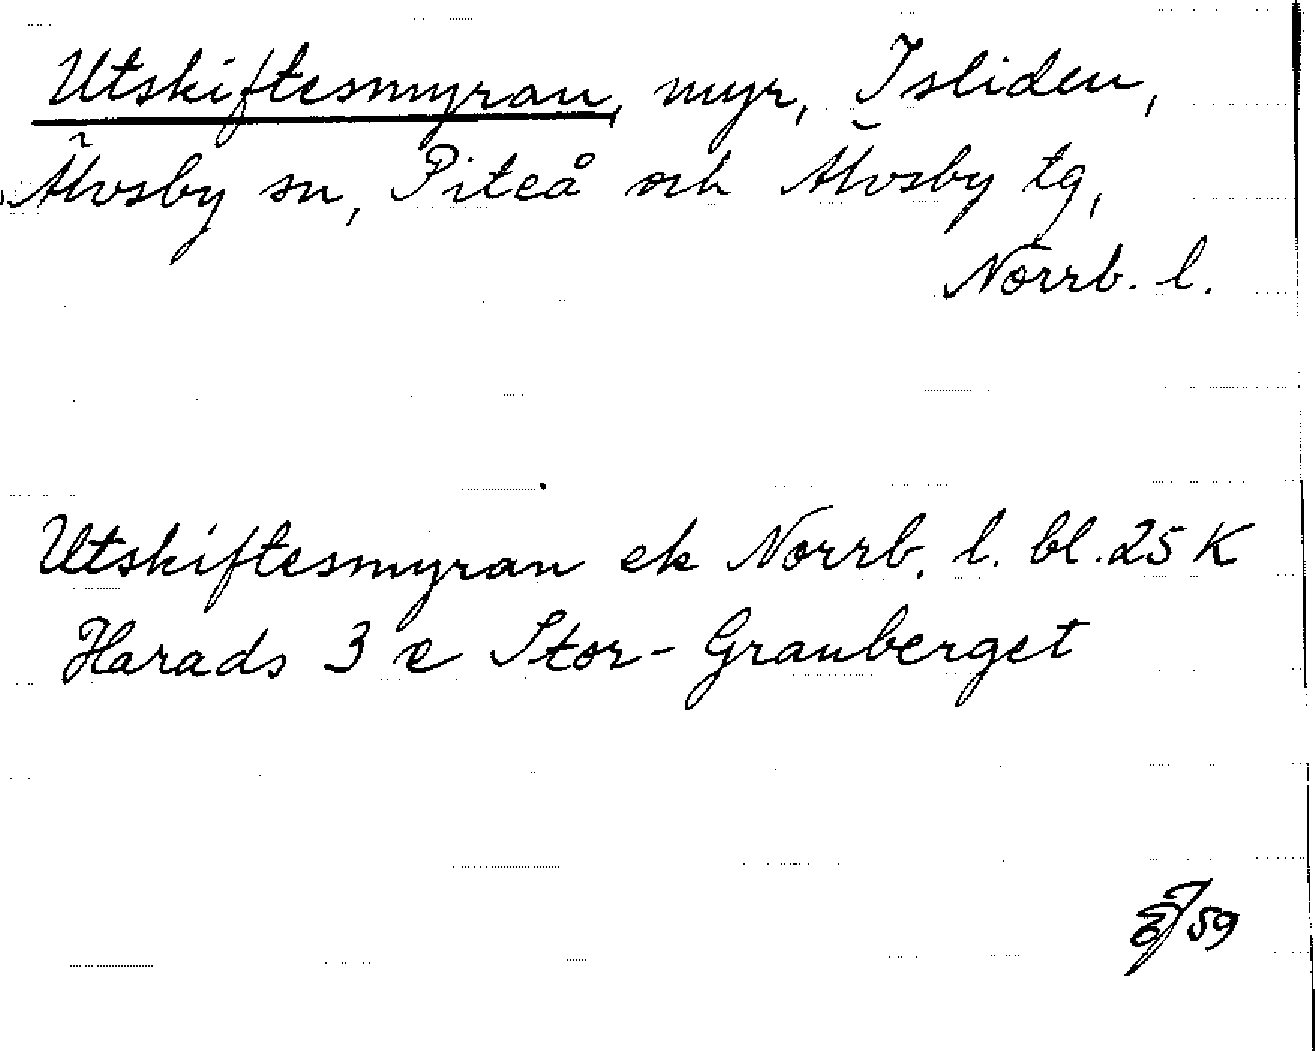 Utskiftesmyran, myr, Isliden,
Älvsby sn, Piteå och Älvsby tg,
Norrb. l.
Utskiftesmyran ek Norrb. l. bl. 25 K
Harads 3 e Stor-Granberget
59